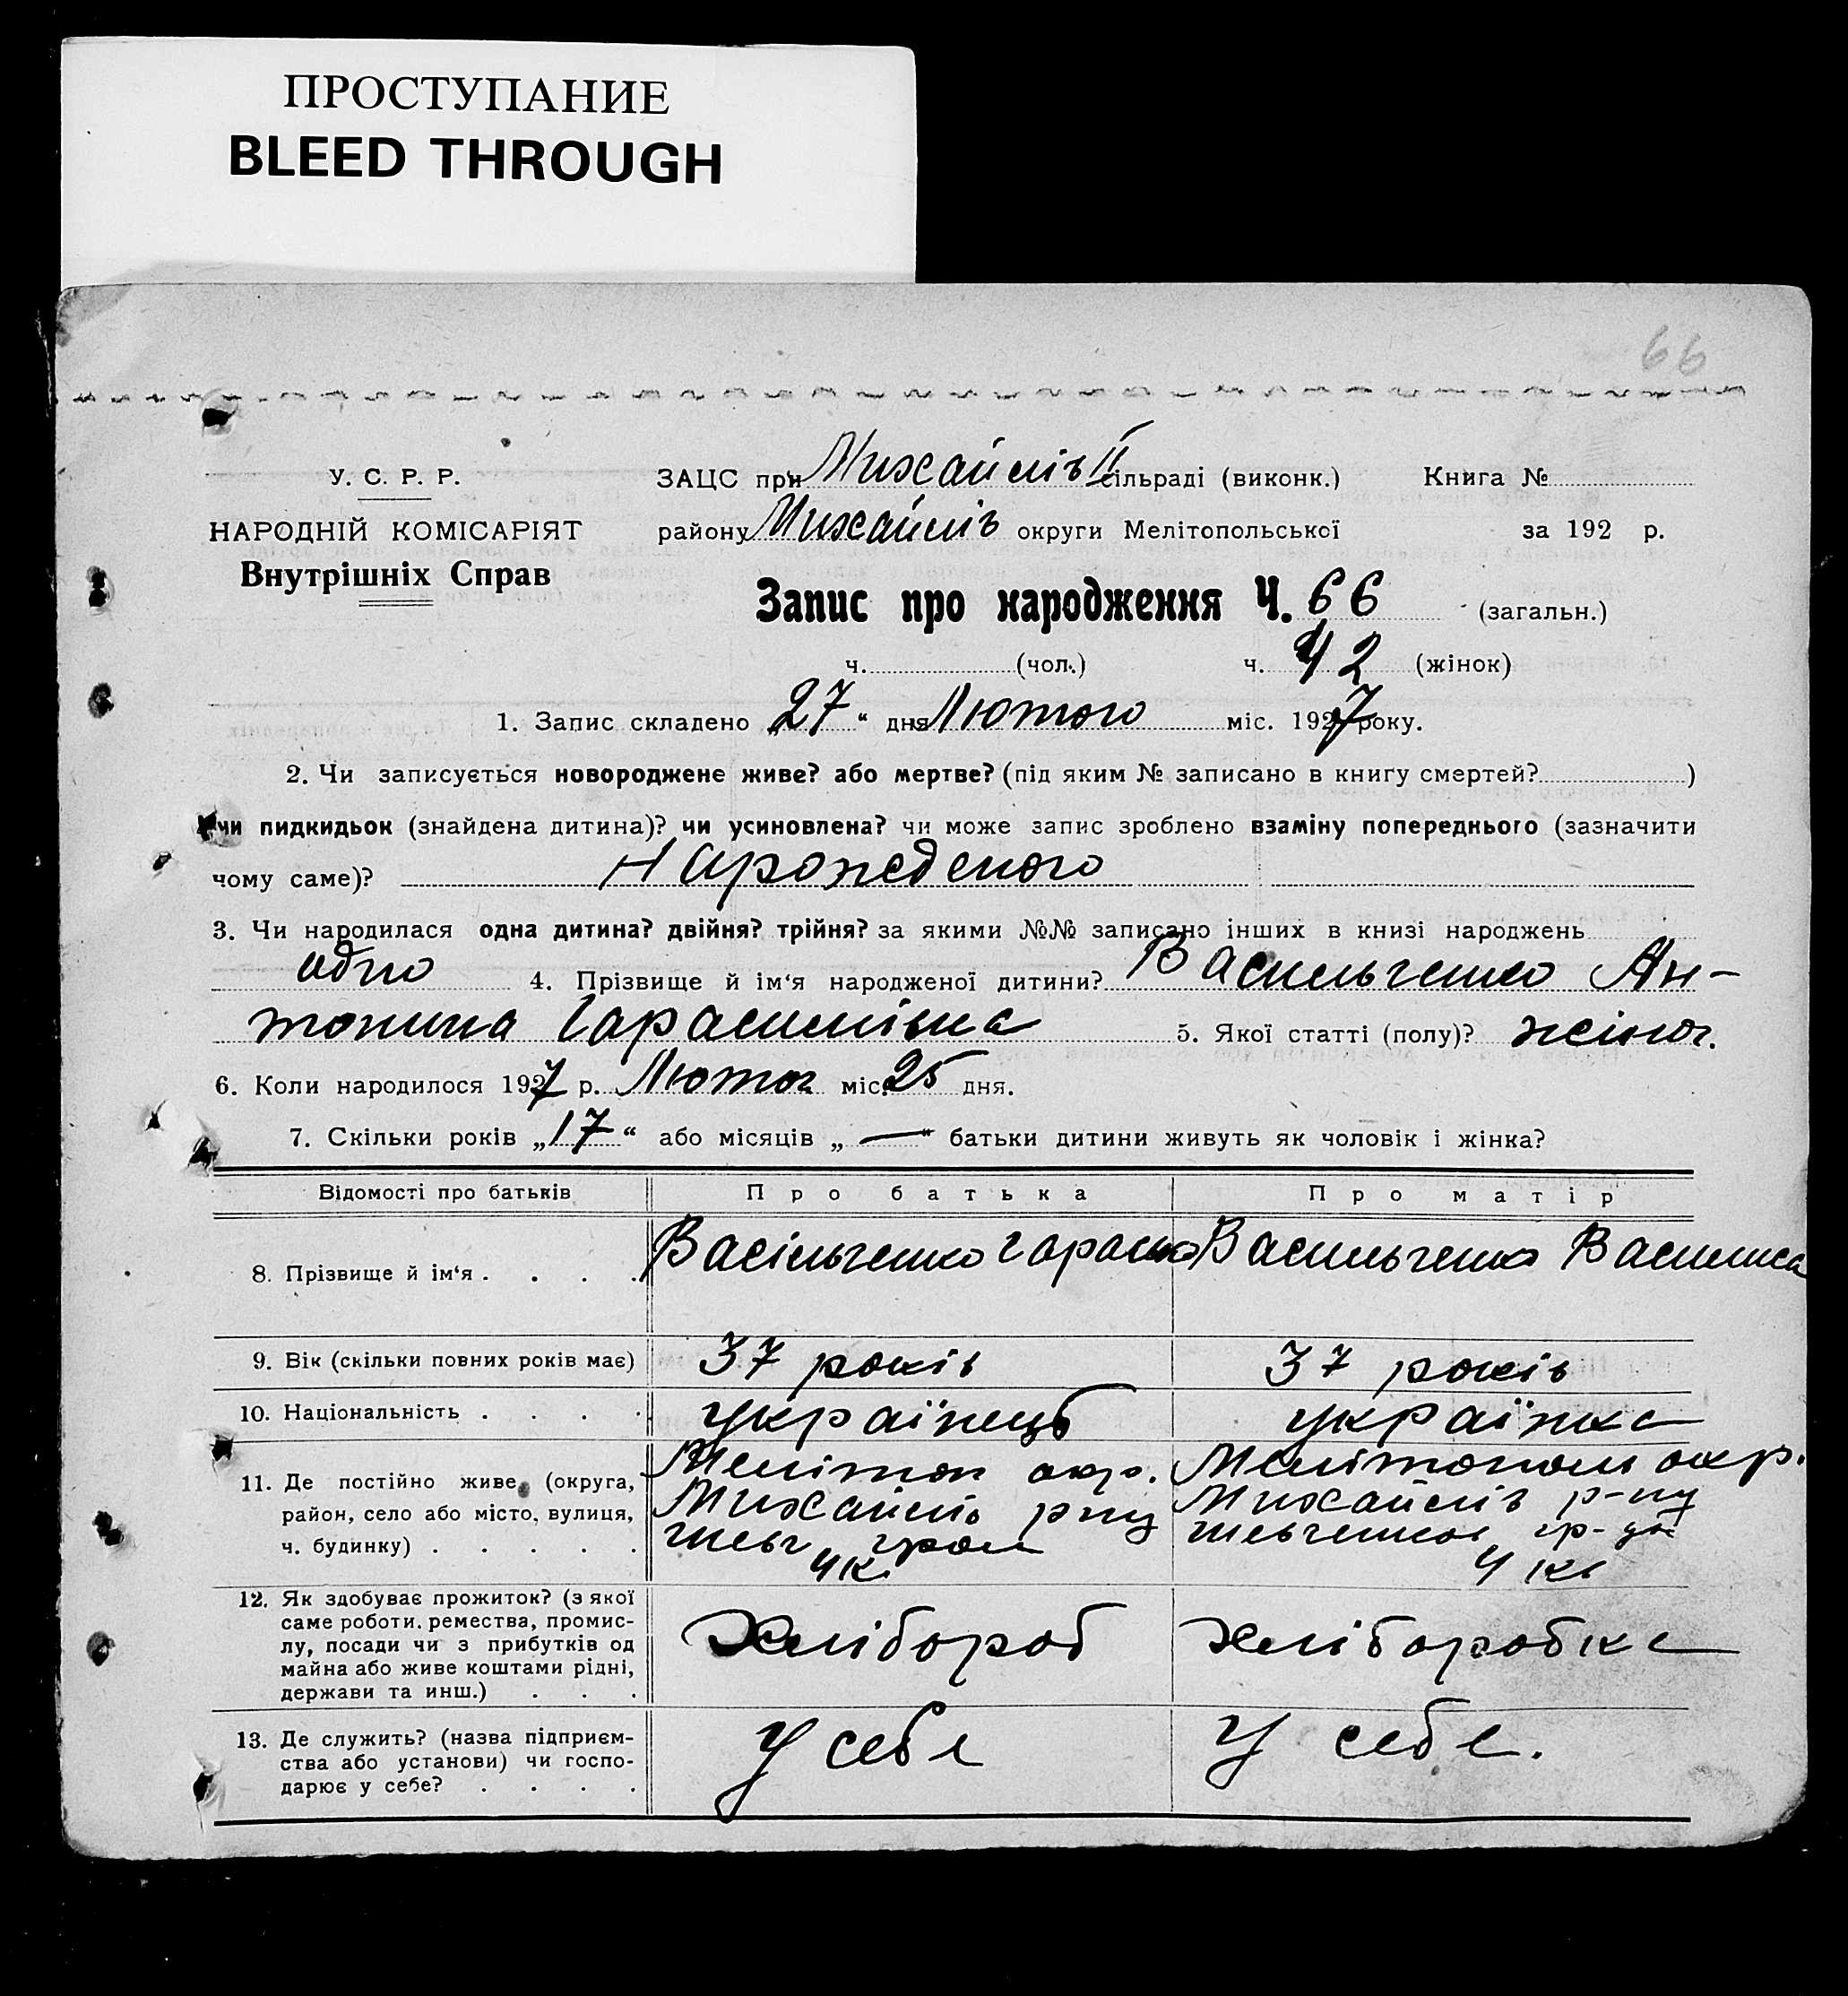 ПРОСТУПАНИЕ
BLEED THROUGH
66
У. С. Р. Р.
НАРОДНІЙ КОМІСАРІЯТ
Внутрішніх Справ
ЗАЦС при Михайлів II сільраді (виконк.) Книга №
району Михайлів округи Мелітопольської за 192 р.
Запис про народження Ч. 66 (загальн.)
ч. (чол.) ч. 42 (жінок)
1. Запис складено „27“ дня Лютого міс. 1927 року.
2. Чи записується новороджене живе? або мертве? (під яким № записано в книгу смертей? )
чи пидкидьок (знайдена дитина)? чи усиновлена? чи може запис зроблено взаміну попереднього (зазначити
чому саме)? Нарожденого
3. Чи народилася одна дитина? двійня? трійня? за якими №№ записано інших в книзі народжень
одно 4. Прізвище й ім‘я народженої дитини? Васильченко Ан-
тонина Гарасимівна 5. Якої статті (полу)? жіноч.
6. Коли народилося 1927 р. Лютог міс. 25 дня.
7. Скільки років „17“ або місяців „—“ батьки дитини живуть як чоловік і жінка?
Відомості про батьків Про батька Про матір
8. Прізвище й ім‘я . . . . Васільченко Васильченко Василиса
9. Вік (скільки повних років має) 37 років 37 років
10. Національність . . . . українець українка
11. Де постійно живе (округа, Мелітоп окр. Мелітополь окр.
район, село або місто, вулиця, Михайлів рну Михайлів р-ну
ч. будинку) . . . . . Шевч
4 к. 4 к.
12. Як здобуває прожиток? (з якої
саме роботи, ремества, промис-
лу, посади чи з прибутків од Хлібороб хліборобка
майна або живе коштами рідні,
держави та инш.) . . .
13. Де служить? (назва підприєм- у себе у себе.
ства або установи) чи госпо-
дарює у себе? . . . .